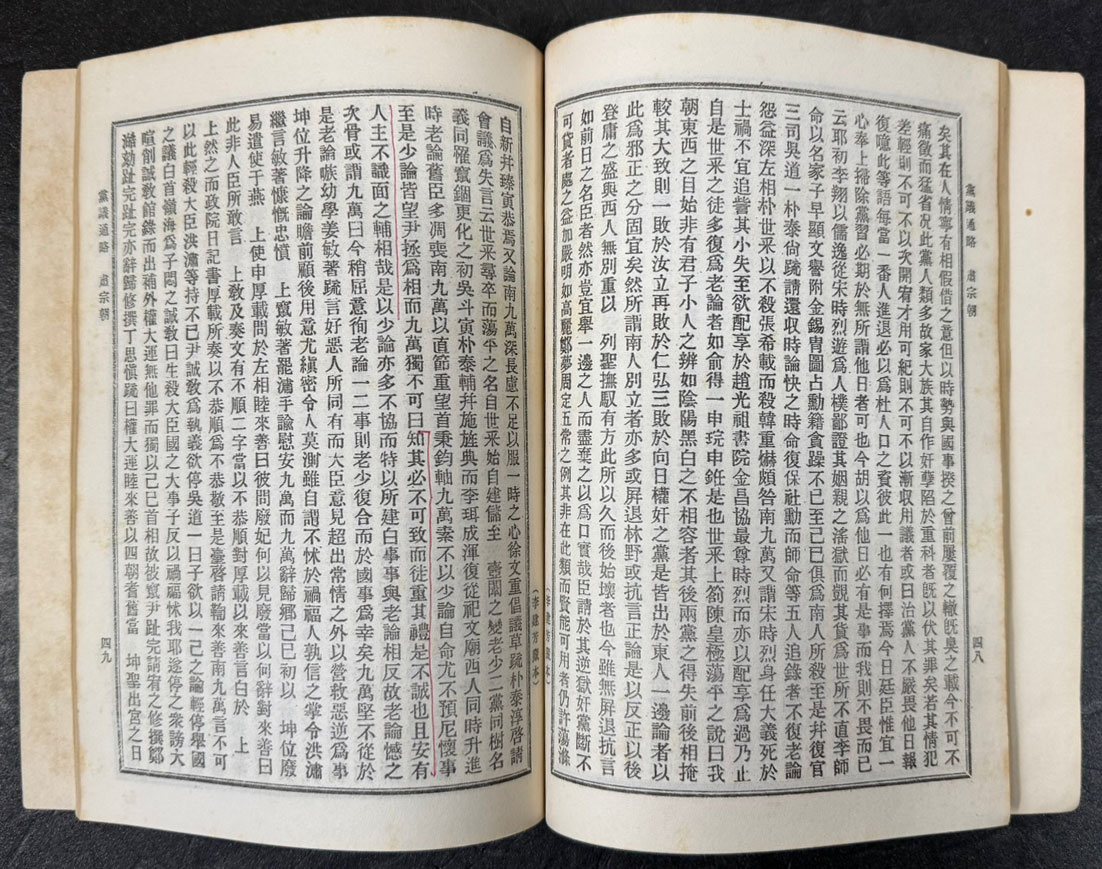 黨議通略　肅宗朝
四八
矣其在人情寧有相假借之意但以時勢與國事揆之曾前屢覆之轍旣臭之載今不可不
痛徵而猛省况此黨人類多故家大族其自作奸孼陷於重科者旣以伏其罪矣若其情犯
差輕則不可不以次開宥才用可紀則不可不以漸収用議者或曰治黨人不嚴畏他日報
復噫此等語每當一番人進退必以爲杜人口之資彼此一也有何擇焉今日廷臣惟宜一
心奉上掃除黨習必期於無所謂他日者可也今胡以爲他日必有是事而我則不畏而已
云耶初李翔以儒逸從宋時烈遊爲人樸鄙證其姻親之潘獄而覬其貨爲世所不直李師
命以名家子早顯文譽附金錫冑圖占勳籍貪躁不已至己巳俱爲南人所殺至是幷復官
三司吳道一朴泰尙䟽請還収時論快之時命復保社勳而師命等五人追錄者不復老論
怨益深左相朴世采以不殺張希載而殺韓重爀頗咎南九萬又謂宋時烈身任大義死於
士禍不宜追訾其小失至欲配享於趙光祖書院金昌協最尊時烈而亦以配享爲過乃止
自是世采之徒多復爲老論者如兪得一申琓申銋是也世采上箚陳皇極蕩平之說曰我
朝東西之目始非有君子小人之辨如陰陽黑白之不相容者其後兩黨之得失前後相掩
較其大致則一敗於汝立再敗於仁弘三敗於向日權奸之黨是皆出於東人一邊論者以
此爲邪正之分固宜矣然所謂南人別立者亦多或屛退林野或抗言正論是以反正以後
登庸之盛與西人無別重以　列聖撫馭有方此所以久而後始壞者也今雖無屛退抗言
如前日之名臣者然亦豈宜擧一邊之人而盡棄之以爲口實哉臣請於其逆獄奸黨斷不
可貸者處之益加嚴明如高麗鄭夢周定五常之例其非在此類而賢能可用者仍許蕩滌
（李建芳藏本）
（李建芳藏本）
自新幷臻寅恭焉又論南九萬深長慮不足以服一時之心徐文重倡議草䟽朴泰淳啓請
會議爲失言云世采尋卒而蕩平之名自世采始自建儲至　壼闈之變老少二黨同樹名
義同罹竄錮更化之初吳斗寅朴泰輔幷施旌典而李珥成渾復從祀文廟西人同時升進
時老論舊臣多凋喪南九萬以直節重望首秉鈞軸九萬素不以少論自命尤不預尼懷事
至是少論皆望尹拯爲相而九萬獨不可曰知其必不可致而徒重其禮是不誠也且安有
人主不識面之輔相哉是以少論亦多不協而特以所建白事事與老論相反故老論憾之
次骨或謂九萬曰今稍屈意徇老論一二事則老少復合而於國事爲幸矣九萬堅不從於
是老論嗾幼學姜敏著䟽言好惡人所同有而大臣意見超出常情之外以營救惡逆爲事
坤位升降之論瞻前顧後用意尤縝密令人莫測雖自謂不怵於禍福人孰信之掌令洪㴤
繼言敏著慷慨忠憤　上竄敏著罷㴤手諭慰安九萬而九萬辭歸鄕己巳初以　坤位廢
易遣使于燕　上使申厚載問於左相睦來善曰彼問廢妃何以見廢當以何辭對來善曰
此非人臣所敢言　上敎及奏文有不順二字當以不恭順對厚載以來善言白於　上
上然之而政院日記書厚載所奏以不恭順爲不恭敬至是臺啓請鞫來善南九萬言不可
以此輕殺大臣洪㴤等持不已尹誠敎爲執義欲停吳道一曰子欲以一己之論輕停擧國
之議白首嶺海爲子悶之誠敎曰生殺大臣國之大事子反以禍福怵我耶遂停之衆謗大
喧削誠敎館錄而出補外權大運無他罪而獨以己巳首相故被竄尹趾完請宥之修撰鄭
澔劾趾完趾完亦辭歸修撰丁思愼䟽曰權大運睦來善以四朝耆舊當　坤聖出宮之日
黨議通略　肅宗朝
四九